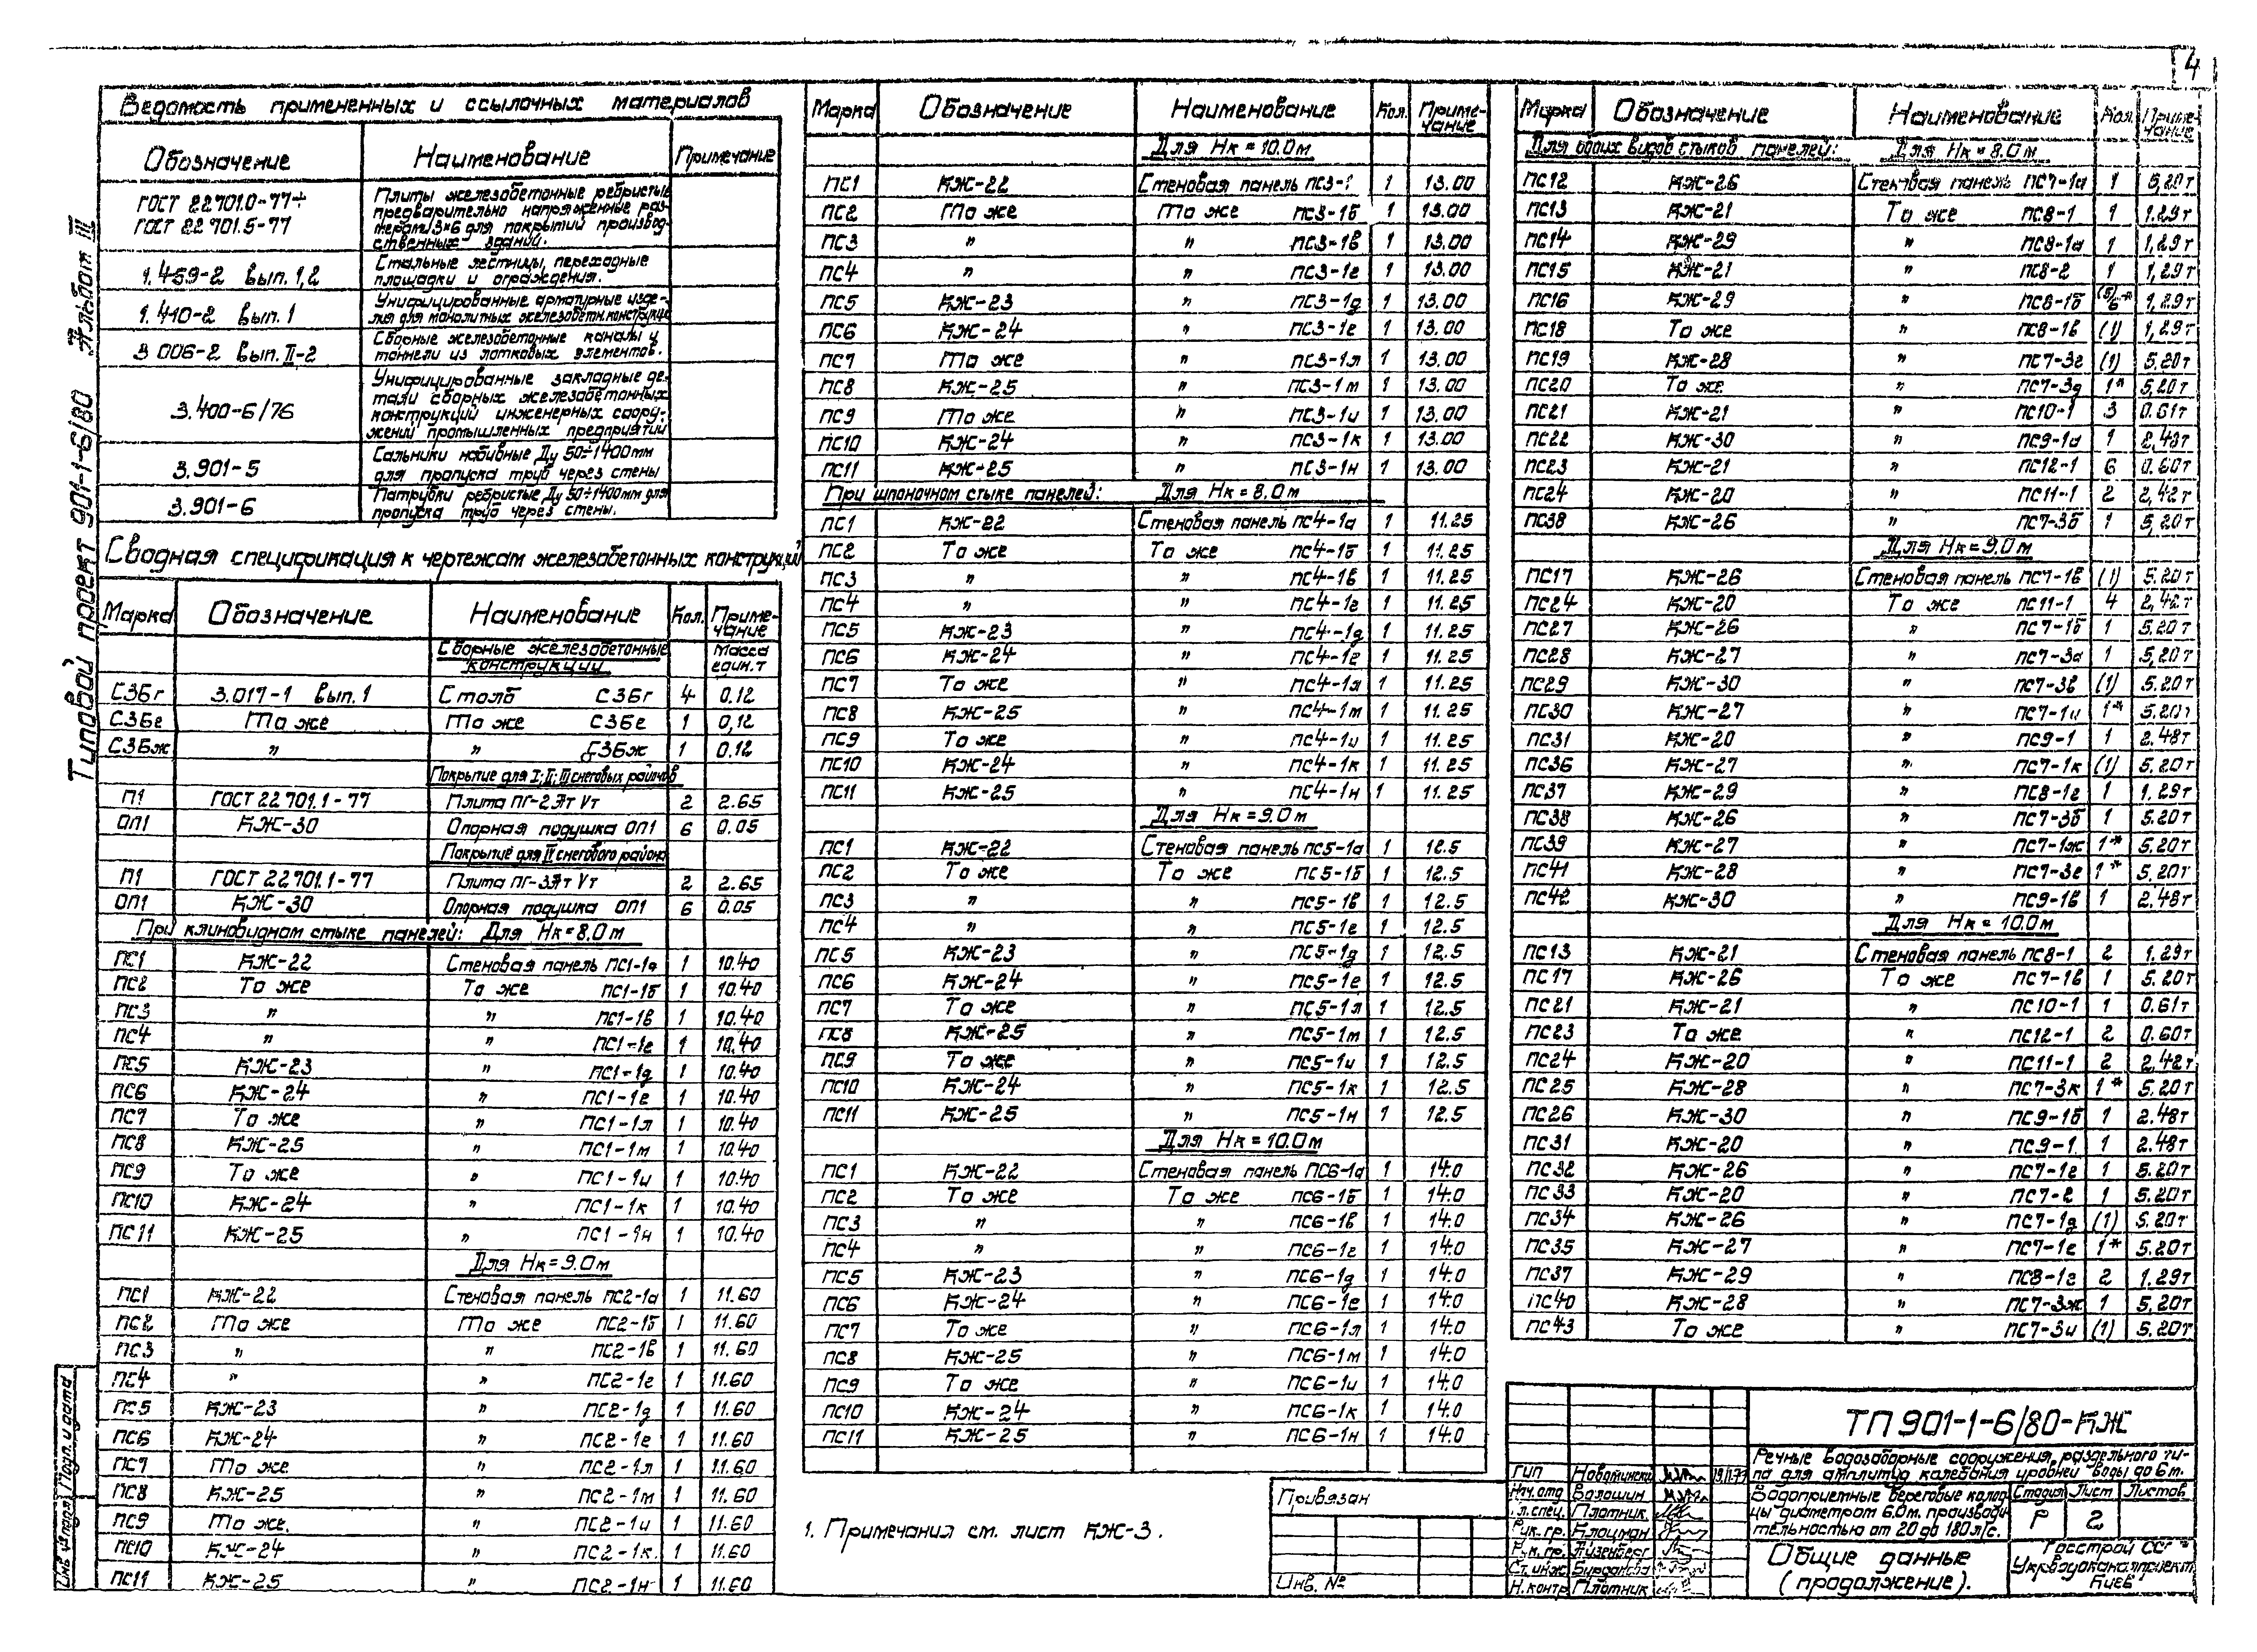 4
Типовой проект 901-1-6/80 Альбом III
Ведомость примененных и ссылочных материалов
Обозначение Наименование Примечание
ГОСТ 22701.0-77÷ ГОСТ 22701.5-77 Плиты железобетонные ребристые
предварительно напряженные раз-
мерам 3×6 для покрытий производ-
ственных зданий.
1.459-2 вып. 1,2 Стальные лестницы, переходные
площадки и ограждения.
1.410-2 вып. 1 Унифицированные арматурные изде-
лия для монолитных железобетн. конструкц
3.006-2 вып. II-2 Сборные железобетонные каналы и
тоннели из лотковых элементов.
3.400-6/76 Унифицированные закладные де-
тали сборных железобетонных
конструкций инженерных соору-
жений промышленных предприятий
3.901-5 Сальники набивные Ду 50÷1400мм
для пропуска труб через стены
3.901-6 Патрубки ребристые Ду 50÷1400мм для
пропуска труб через стены.
Сводная спецификация к чертежам железобетонных конструкций
Марка Обозначение Наименование Кол. Приме-
чание
Сборные железобетонные Масса
конструкции един. т
С3Бг 3.017-1 вып. 1 Столб С3Бг 4 0,12
С3Бе То же То же С3Бе 1 0,12
С3Бж " " С3Бж 1 0.12
Покрытие для I; II; III снеговых районов
П1 ГОСТ 22701.1-77 Плита ПГ-2АтVт 2 2.65
ОП1 КЖ-30 Опорная подушка ОП1 6 0.05
Покрытие для IV снегового района
П1 ГОСТ 22701.1-77 Плита ПГ-3АтVт 2 2.65
ОП1 КЖ-30 Опорная подушка ОП1 6 0.05
При клиновидном стыке панелей: Для Нк=8.0м
ПС1 КЖ-22 Стеновая панель ПС1-1а 1 10.40
ПС2 То же То же ПС1-1б 1 10.40
ПС3 " " ПС1-1в 1 10.40
ПС4 " " ПС1-1г 1 10.40
ПС5 КЖ-23 " ПС1-1д 1 10.40
ПС6 КЖ-24 " ПС1-1е 1 10.40
ПС7 То же " ПС1-1л 1 10.40
ПС8 КЖ-25 " ПС1-1м 1 10.40
ПС9 То же " ПС1-1и 1 10.40
ПС10 КЖ-24 " ПС1-1к 1 10.40
ПС11 КЖ-25 " ПС1-1н 1 10.40
Для Нк=9.0м
ПС1 КЖ-22 Стеновая панель ПС2-1а 1 11.60
ПС2 То же То же ПС2-1б 1 11.60
ПС3 " " ПС2-1в 1 11.60
ПС4 " " ПС2-1г 1 11.60
ПС5 КЖ-23 " ПС2-1д 1 11.60
ПС6 КЖ-24 " ПС2-1е 1 11.60
ПС7 То же " ПС2-1л 1 11.60
ПС8 КЖ-25 " ПС2-1м 1 11.60
ПС9 То же. " ПС2-1и 1 11.60
ПС10 КЖ-24 " ПС2-1к 1 11.60
ПС11 КЖ-25 " ПС2-1н 1 11.60
Марка Обозначение Наименование Кол. Приме-
чание
Для Нк=10.0м
ПС1 КЖ-22 Стеновая панель ПС3-1 1 13.00
ПС2 То же То же ПС3-1б 1 13.00
ПС3 " " ПС3-1в 1 13.00
ПС4 " " ПС3-1г 1 13.00
ПС5 КЖ-23 " ПС3-1д 1 13.00
ПС6 КЖ-24 " ПС3-1е 1 13.00
ПС7 То же " ПС3-1л 1 13.00
ПС8 КЖ-25 " ПС3-1м 1 13.00
ПС9 То же " ПС3-1и 1 13.00
ПС10 КЖ-24 " ПС3-1к 1 13.00
ПС11 КЖ-25 " ПС3-1н 1 13.00
При шпоночном стыке панелей: Для Нк=8.0м
ПС1 КЖ-22 Стеновая панель ПС4-1а 1 11.25
ПС2 То же То же ПС4-1б 1 11.25
ПС3 " " ПС4-1в 1 11.25
ПС4 " " ПС4-1г 1 11.25
ПС5 КЖ-23 " ПС4-1д 1 11.25
ПС6 КЖ-24 " ПС4-1е 1 11.25
ПС7 То же " ПС4-1л 1 11.25
ПС8 КЖ-25 " ПС4-1м 1 11.25
ПС9 То же " ПС4-1и 1 11.25
ПС10 КЖ-24 " ПС4-1к 1 11.25
ПС11 КЖ-25 " ПС4-1н 1 11.25
Для Нк=9.0м
ПС1 КЖ-22 Стеновая панель ПС5-1а 1 12.5
ПС2 То же То же ПС5-1б 1 12.5
ПС3 " " ПС5-1в 1 12.5
ПС4 " " ПС5-1г 1 12.5
ПС5 КЖ-23 " ПС5-1д 1 12.5
ПС6 КЖ-24 " ПС5-1е 1 12.5
ПС7 То же " ПС5-1л 1 12.5
ПС8 КЖ-25 " ПС5-1м 1 12.5
ПС9 То же " ПС5-1и 1 12.5
ПС10 КЖ-24 " ПС5-1к 1 12.5
ПС11 КЖ-25 " ПС5-1н 1 12.5
Для Нк=10.0м
ПС1 КЖ-22 Стеновая панель ПС6-1а 1 14.0
ПС2 То же То же ПС6-1б 1 14.0
ПС3 " " ПС6-1в 1 14.0
ПС4 " " ПС6-1г 1 14.0
ПС5 КЖ-23 " ПС6-1д 1 14.0
ПС6 КЖ-24 " ПС6-1е 1 14.0
ПС7 То же " ПС6-1л 1 14.0
ПС8 КЖ-25 " ПС6-1м 1 14.0
ПС9 То же " ПС6-1и 1 14.0
ПС10 КЖ-24 " ПС6-1к 1 14.0
ПС11 КЖ-25 " ПС6-1н 1 14.0
1. Примечания см. лист КЖ-3.
Марка Обозначение Наименование Кол. Приме-
чание
Для обоих видов стыков панелей: Для Нк=8.0м
ПС12 КЖ-26 Стеновая панель ПС7-1а 1 5,20т
ПС13 КЖ-21 То же ПС8-1 1 1.29т
ПС14 КЖ-29 " ПС8-1а 1 1,29т
ПС15 КЖ-21 " ПС8-2 1 1,29т
ПС16 КЖ-29 " ПС8-1б (5) 6* 1,29т
ПС18 То же " ПС8-1в (1) 1,29т
ПС19 КЖ-28 " ПС7-3г (1) 5.20т
ПС20 То же " ПС7-3д 1* 5,20т
ПС21 КЖ-21 " ПС10-1 3 0.61т
ПС22 КЖ-30 " ПС9-1а 1 2,48т
ПС23 КЖ-21 " ПС12-1 6 0.60т
ПС24 КЖ-20 " ПС11-1 2 2,42т
ПС38 КЖ-26 " ПС7-3б 1 5,20т
Для Нк=9.0м
ПС17 КЖ-26 Стеновая панель ПС7-1в (1) 5.20т
ПС24 КЖ-20 То же ПС11-1 4 2,42т
ПС27 КЖ-26 " ПС7-1б 1 5.20т
ПС28 КЖ-27 " ПС7-3а 1 5,20т
ПС29 КЖ-30 " ПС7-3в (1) 5.20т
ПС30 КЖ-27 " ПС7-1и 1* 5.20т
ПС31 КЖ-20 " ПС9-1 1 2.48т
ПС36 КЖ-27 " ПС7-1к (1) 5.20т
ПС37 КЖ-29 " ПС8-1г 1 1.29т
ПС38 КЖ-26 " ПС7-3б 1 5.20т
ПС39 КЖ-27 " ПС7-1ж 1* 5.20т
ПС41 КЖ-28 " ПС7-3е 1* 5.20т
ПС42 КЖ-30 " ПС9-1в 1 2.48т
Для Нк=10.0м
ПС13 КЖ-21 Стеновая панель ПС8-1 2 1.29т
ПС17 КЖ-26 То же ПС7-1в 1 5.20т
ПС21 КЖ-21 " ПС10-1 1 0.61т
ПС23 То же " ПС12-1 2 0.60т
ПС24 КЖ-20 " ПС11-1 2 2,42т
ПС25 КЖ-28 " ПС7-3к 1* 5.20т
ПС26 КЖ-30 " ПС9-1б 1 2.48т
ПС31 КЖ-20 " ПС9-1 1 2.48т
ПС32 КЖ-26 " ПС7-1г 1 5.20т
ПС33 КЖ-20 " ПС7-2 1 5.20т
ПС34 КЖ-26 " ПС7-1д (1) 5.20т
ПС35 КЖ-27 " ПС7-1е 1* 5.20т
ПС37 КЖ-29 " ПС8-1г 2 1.29т
ПС40 КЖ-28 " ПС7-3ж 1 5.20т
ПС43 То же " ПС7-3и (1) 5.20т
ТП 901-1-6/80-КЖ
Речные водозаборные сооружения, раздельного ти-
па для амплитуд колебания уровней воды до 6м.
Водоприемные береговые колод-
цы диаметром 6.0м. производи-
тельностью от 20 до 180 л/с.
Стадия Лист Листов
Р 2
Общие данные
(продолжение).
Госстрой СССР
Укрводоканалпроект
Киев
ГИП
Нач. отд Волошин
Гл. спец. Плотник
Рук. гр. Клоцман
Рук. гр. Айзенберг
Ст. инж.
Н. контр Плотник
Привязан
Инв. №
Подп. и дата
Инв. № подл